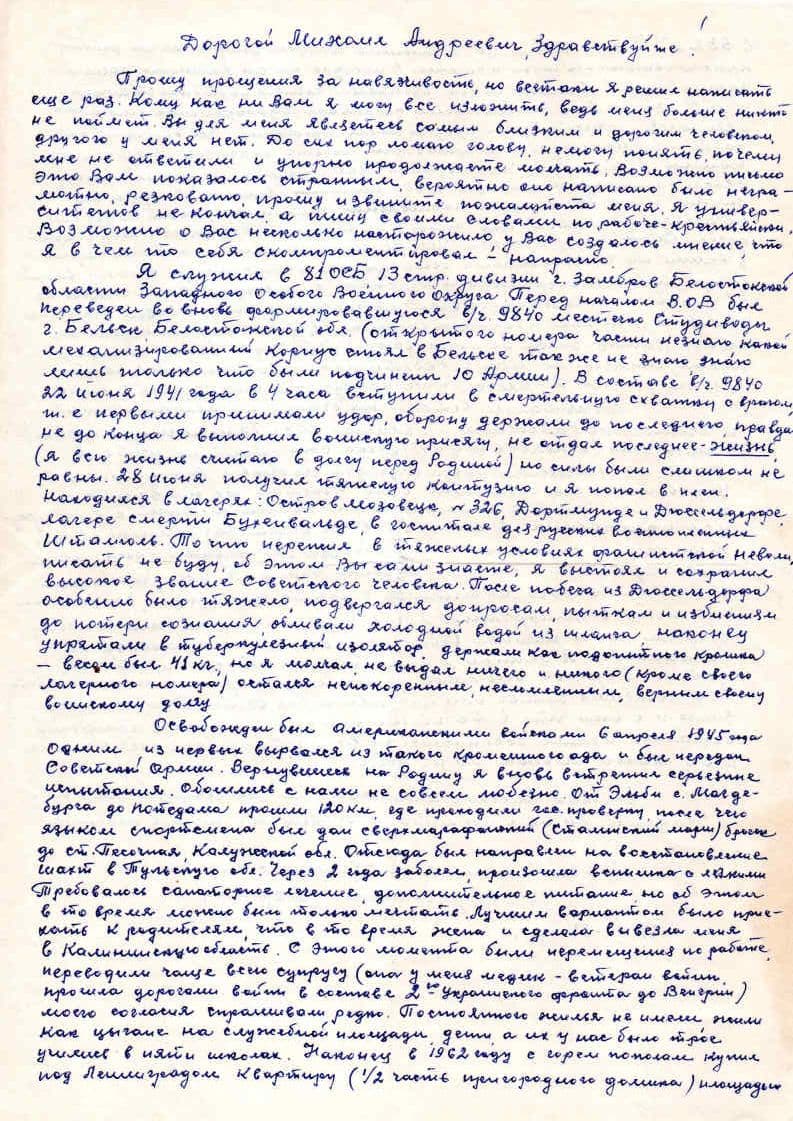 1
Дорогой Михаил Андреевич, Здравствуйте!
Прошу прощения за навязчивость, но всетаки я решил написать
еще раз. Кому как ни Вам я могу все изложить, ведь меня больше никто
не поймет. Вы для меня являетесь самым близким и дорогим человеком,
другого у меня нет. До сих пор ломаю голову, немогу понять, почему
мне не ответили и упорно продолжаете молчать. Возможно письмо
это Вам показалось странным, вероятно оно написано было негра-
мотно, резковато, прошу извините пожалуйста меня. Я универ-
ситетов не кончал, а пишу своими словами по рабоче-крестьянски.
Возможно о Вас несколько насторожило, у Вас создалось мнение что
я в чем то себя скомпроментировал – напрасно.
Я служил в 81 ОСБ 13 стр. дивизии г. Замбров Белостокской
области Западного Особого Военного Округа. Перед началом В.О.В был
переведен во вновь формировавшуюся в/ч. 9840 местечко Студиводы
г. Бельск Белостокской обл. (открытого номера части незнаю какой
механизированный корпус стоял в Бельске также не знаю знаю
лишь только что были подчинены 10 Армии). В составе в/ч. 9840
22 июня 1941 года в 4 часа вступили в смертельную схватку с врагом,
т. е первыми принимали удар, оборону держали до последнего правда
не до конца я выполнил воинскую присягу, не отдал последнее - жизнь
(я всю жизнь считаю в долгу перед Родиной) но силы были слишком не
равны. 28 июня получил тяжелую контузию и я попал в плен.
Находился в лагерях: Остров Мазовецк, № 326, Дортмунде и Дюссельдорфе,
лагере смерти Бухенвальде, в госпитале для русских военнопленных
То что пережил в тяжелых условиях фашистской неволи,
писать не буду, об этом Вы сами знаете, я выстоял и сохранил
высокое звание Советского человека. После побега из Дюссельдорфа
особенно было тяжело, подвергался допросам, пыткам и избиениям
до потери сознания обливали холодной водой из шланга, наконец
упрятали в туберкулезный изолятор, держали как подопытного кролика
– весом был 41 кг, но я молчал не выдал ничего и никого (кроме своего
лагерного номера) остался непокоренным, несломленным, верным своему
воинскому долгу
Освобожден был американскими войсками 6 апреля 1945 года
Одним из первых вырвался из такого кромешного ада и был передан
Советской Армии. Вернувшись на Родину я вновь встретил серьезные
испытания. Обошлись с нами не совсем любезно. От Эльбы с. Магде-
бурга до Потсдама прошли 120 км, где проходили гос. проверку, после чего
языком спортсмена был дан сверхмарафонский (Сталинский марш) бросок
до ст. Песочная, Калужской обл. Отсюда был направлен на восстановление
шахт в Тульскую обл. Через 2 года заболел, произошла вспышка с легкими
Требовалось санаторное лечение, дополнительное питание но об этом
в то время можно было только мечтать. Лучшим вариантом было прие-
хать к родителям, что в то время жена и сделала вывезла меня
в Калининскую область. С этого момента были перемещения по работе,
переводили чаще всего супругу (она у меня медик - ветеран войны,
прошла дорогами войны в составе 2го Украинского фронта до Венгрии)
моего согласия спрашивали редко. Постоянного жилья не имели жили
как цыгане на служебной площади, дети, а их у нас было трое
учились в пяти школах. Наконец в 1962 году с горем пополам купил
под Ленинградом квартиру (1/2 часть пригородного домика) площадью